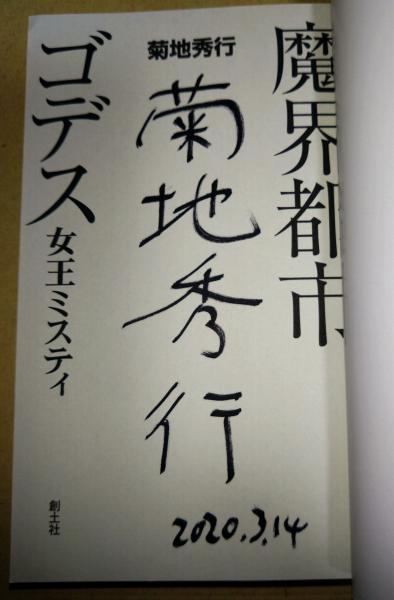 魔界都市
ゴデス
女王ミスティ
菊地秀行
菊地秀行
2020.3.14
創土社